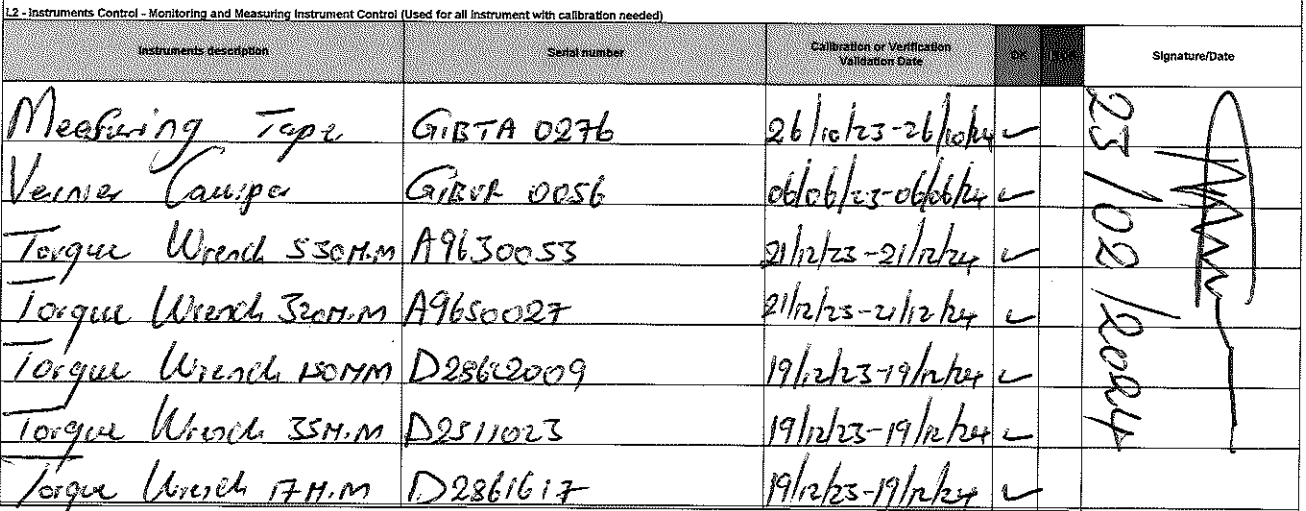 L2 - Instruments Control - Monitoring and Measuring Instrument Control (Used for all instrument with calibration needed)
Instruments description Serial number Calibration or Verification Validation Date OK Signature/Date
Meefuring Tape GIBTA 0276 26/10/23-26/10/24 ✓
Vernier GIBVR 0056 06/06/23-06/06/24 ✓
Torque Wrench 530N.M A9630053 21/12/23-21/12/24 ✓
Torque Wrench 320N.M A9650027 21/12/23-21/12/24 ✓
Torque Wrench 150NM 19/12/23-19/12/24 ✓
Torque Wrench 35N.M D2511023 19/12/23-19/12/24 ✓
Torque Wrench 17N.M D2861617 19/12/23-19/12/24 ✓
23/02/2024